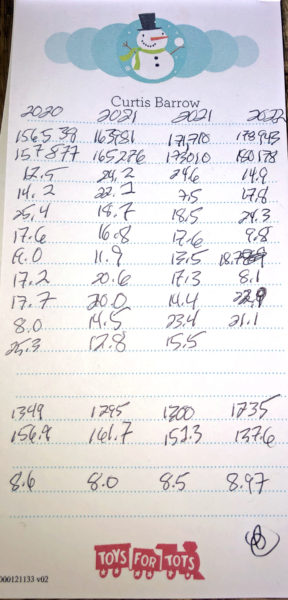 Curtis Barrow
2020 2021 2021 2022
163981 171,710 178943
157877 165276 173010 180178
12.5 24.2 24.6 14.9
14.2 22.2 7.5 17.8
25.4 18.7 18.5 24.3
17.6 16.8 17.6 9.8
19.0 11.9 13.5 18.7
17.2 20.6 17.3 8.1
17.7 20.0 14.4 22.9
8.0 14.5 23.4 21.1
25.3 12.8 15.5
1349 1295 1300 1235
156.9 161.7 152.3 137.6
8.6 8.0 8.5 8.97
TOYS FOR TOTS
000121133 v02